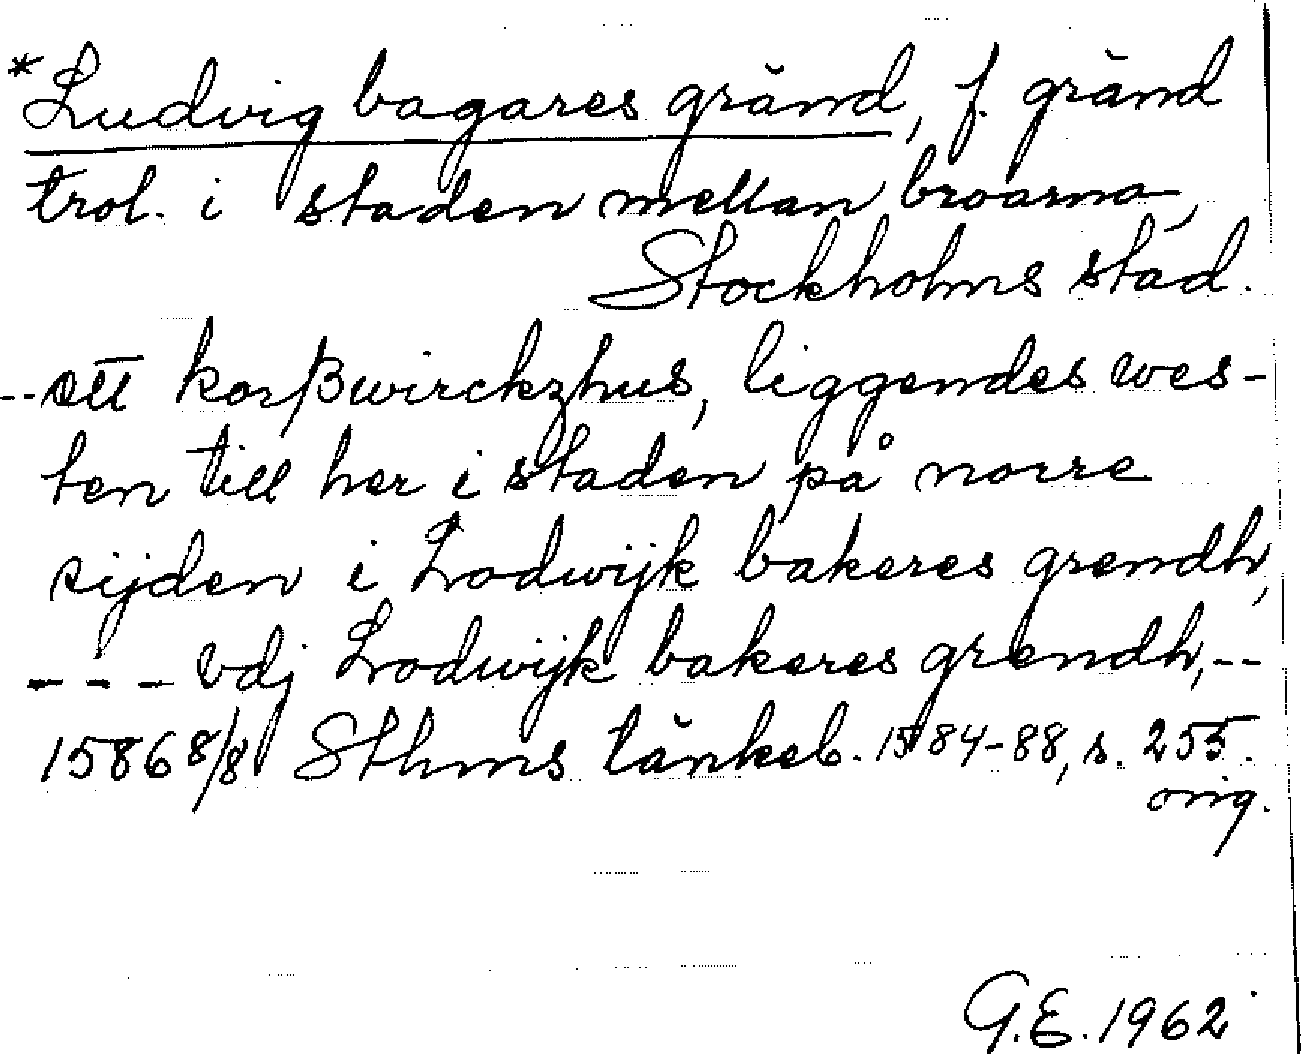 *Ludvig bagares gränd, f. gränd
trol. i staden mellan broarna,
Stockholms stad.
--ett korßwirckzhus, liggendes wes-
ten till her i staden på norre
sijden i Lodwijk bakeres grendh,
--- vdj Lodwijk bakeres grendh,--
1586 8/8 Sthms tänkeb. 1584-88, s. 255.
orig.
G.E. 1962